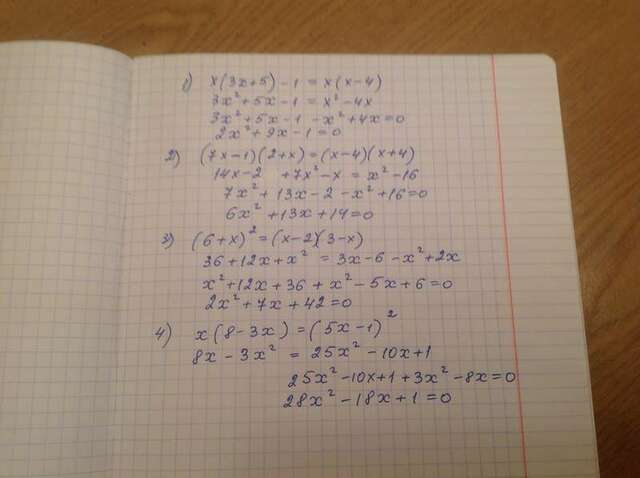 1) x(3x+5)-1=x(x-4)
3x²+5x-1=x²-4x
3x²+5x-1-x²+4x=0
2x²+9x-1=0
2) (7x-1)(2+x)=(x-4)(x+4)
14x-2 +7x²-x=x²-16
7x²+13x-2-x²+16=0
6x²+13x+14=0
3) (6+x)²=(x-2)(3-x)
36+12x+x²=3x-6-x²+2x
x²+12x+36+x²-5x+6=0
2x²+7x+42=0
4) x(8-3x)=(5x-1)²
8x-3x²=25x²-10x+1
25x²-10x+1+3x²-8x=0
28x²-18x+1=0